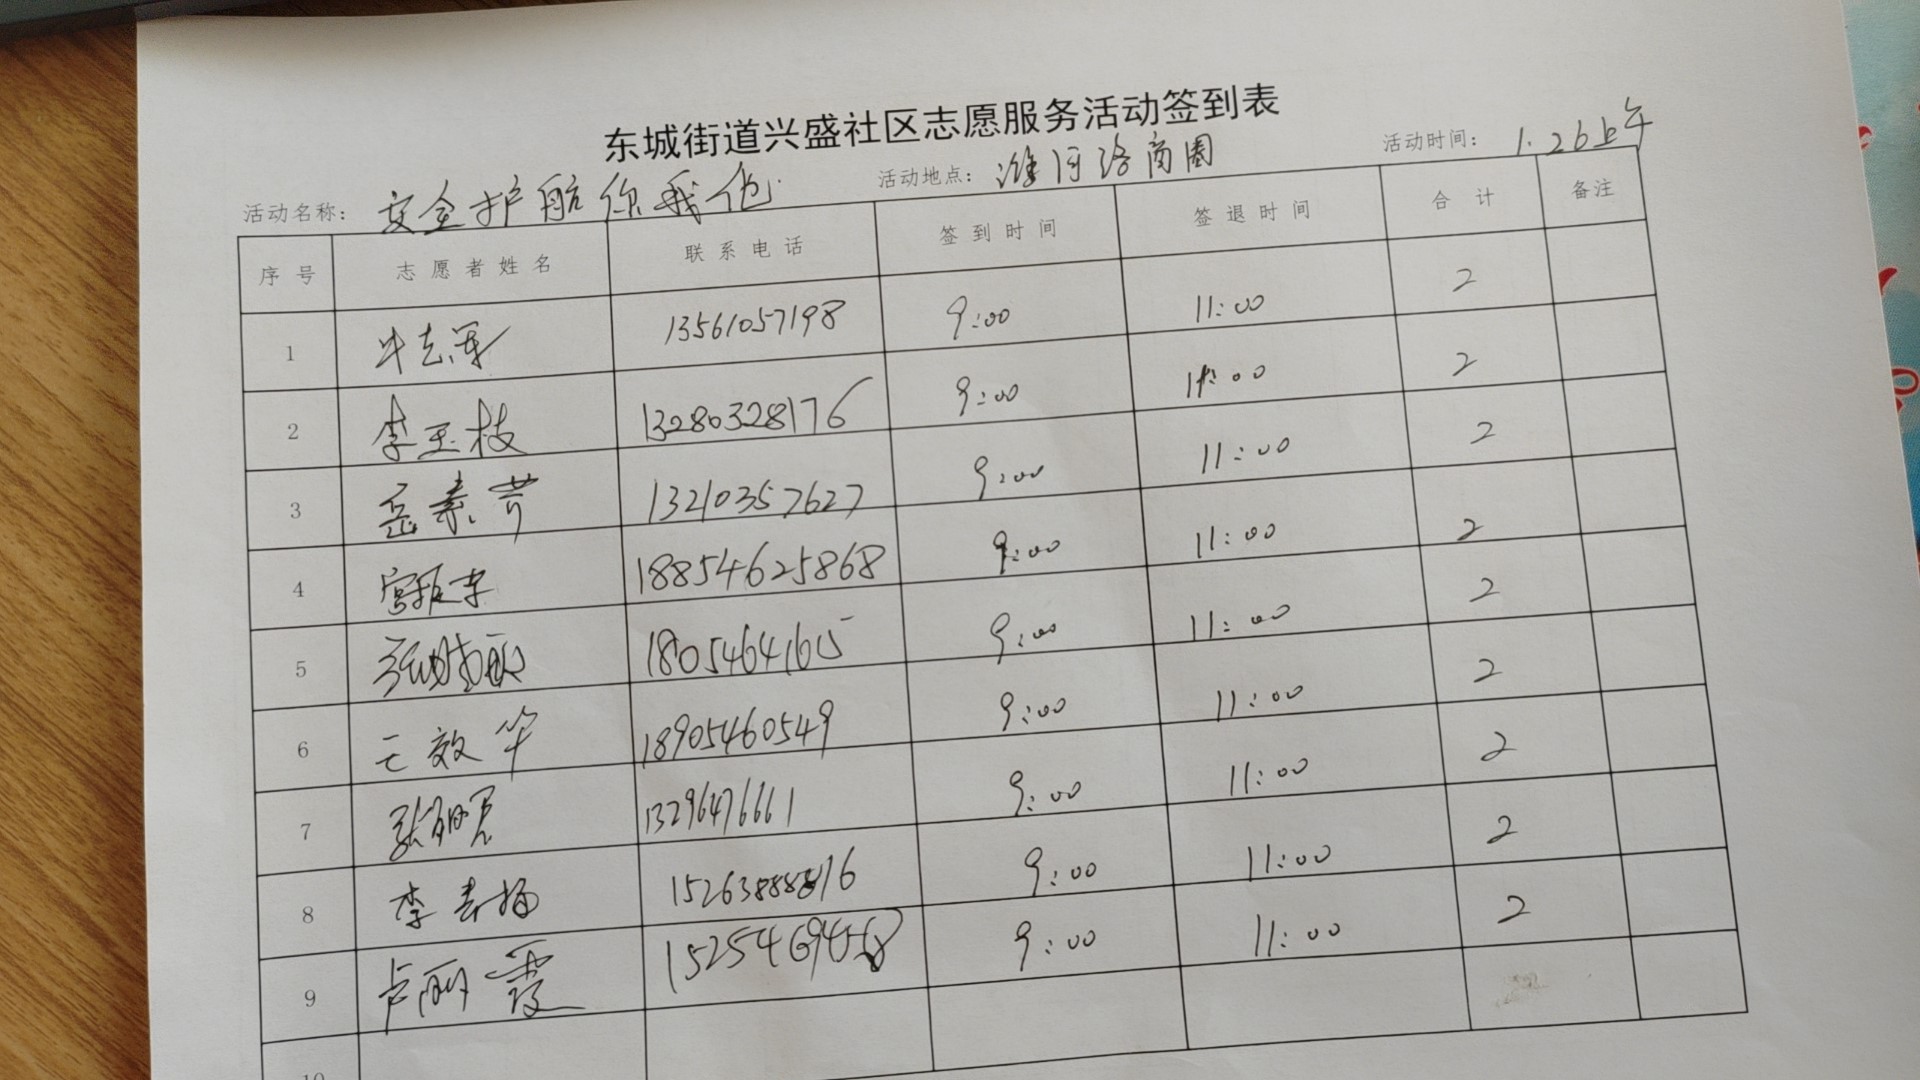 东城街道兴盛社区志愿服务活动签到表
活动名称: 安全护航你我他 活动地点: 潍河路商圈 活动时间: 1.26上午
序号 志愿者姓名 联系电话 签到时间 签退时间 合计 备注
1 牛志军 13561057198 9:00 11:00 2
2 李玉枝 13280328176 9:00 11:00 2
3 岳素芹 13210357627 9:00 11:00 2
4 18854625868 9:00 11:00 2
5 18054641615 9:00 11:00 2
6 王效华 18905460549 9:00 11:00 2
7 13296476661 9:00 11:00 2
8 李春梅 9:00 11:00 2
9 卢丽霞 9:00 11:00 2
10